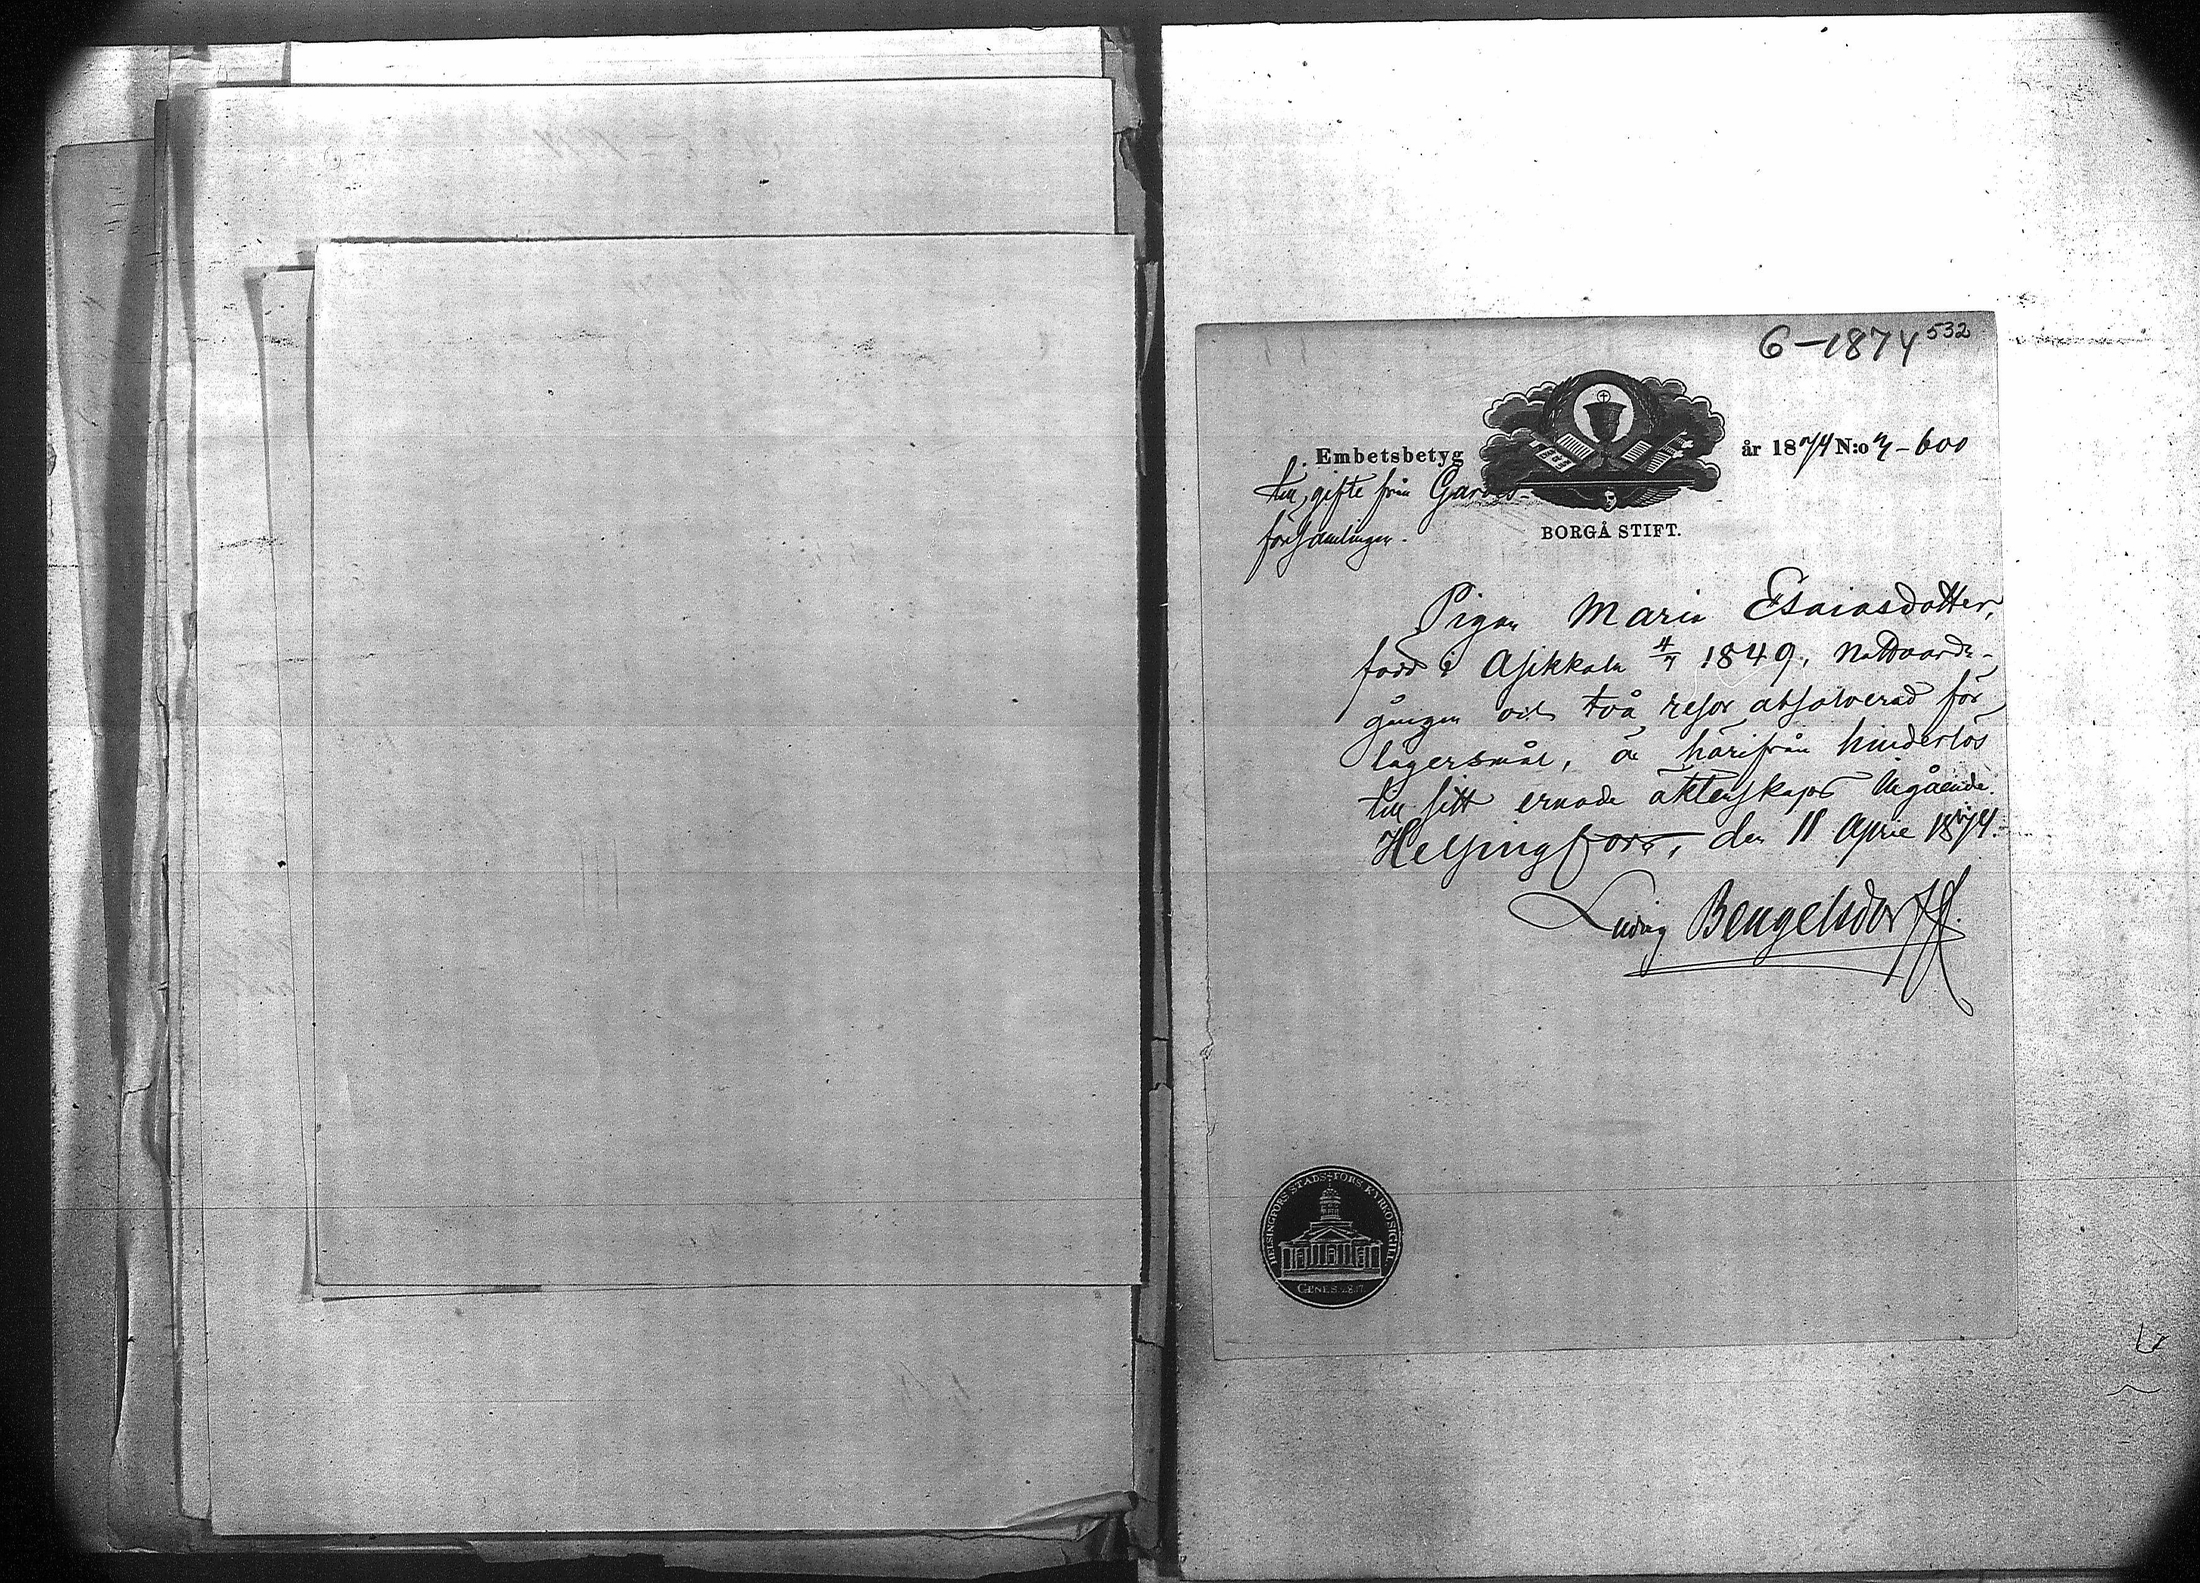 6-1874 532
Embetsbetyg år 1874 N:o 3-600
till gifte från Gardes-
församlingen.
BORGÅ STIFT.
Pigan Maria Esaiasdotter,
född i Asikkala 4/7 1849, nattvards-
gången och två resor absolverad för
lägersmål, är härifrån hinderlös
till sitt ernade äktenskaps ingående.
Helsingfors, den 11 April 1874.
Ludvig Bengelsdorff.
HELSINGFORS STADSFÖRS. KYRKOSIGILL